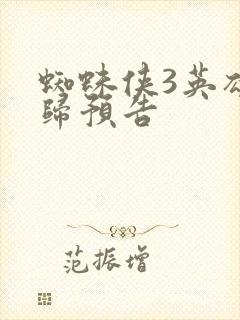 蜘蛛侠3英雄
歸預告
范振增